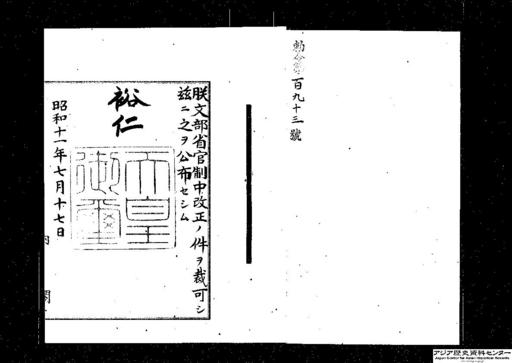 勅令第百九十三號
朕文部省官制中改正ノ件ヲ裁可シ
茲ニ之ヲ公布セシム
裕仁
天皇御璽
昭和十一年七月十七日
内閣
アジア歴史資料センター
Japan Center for Asian Historical Records